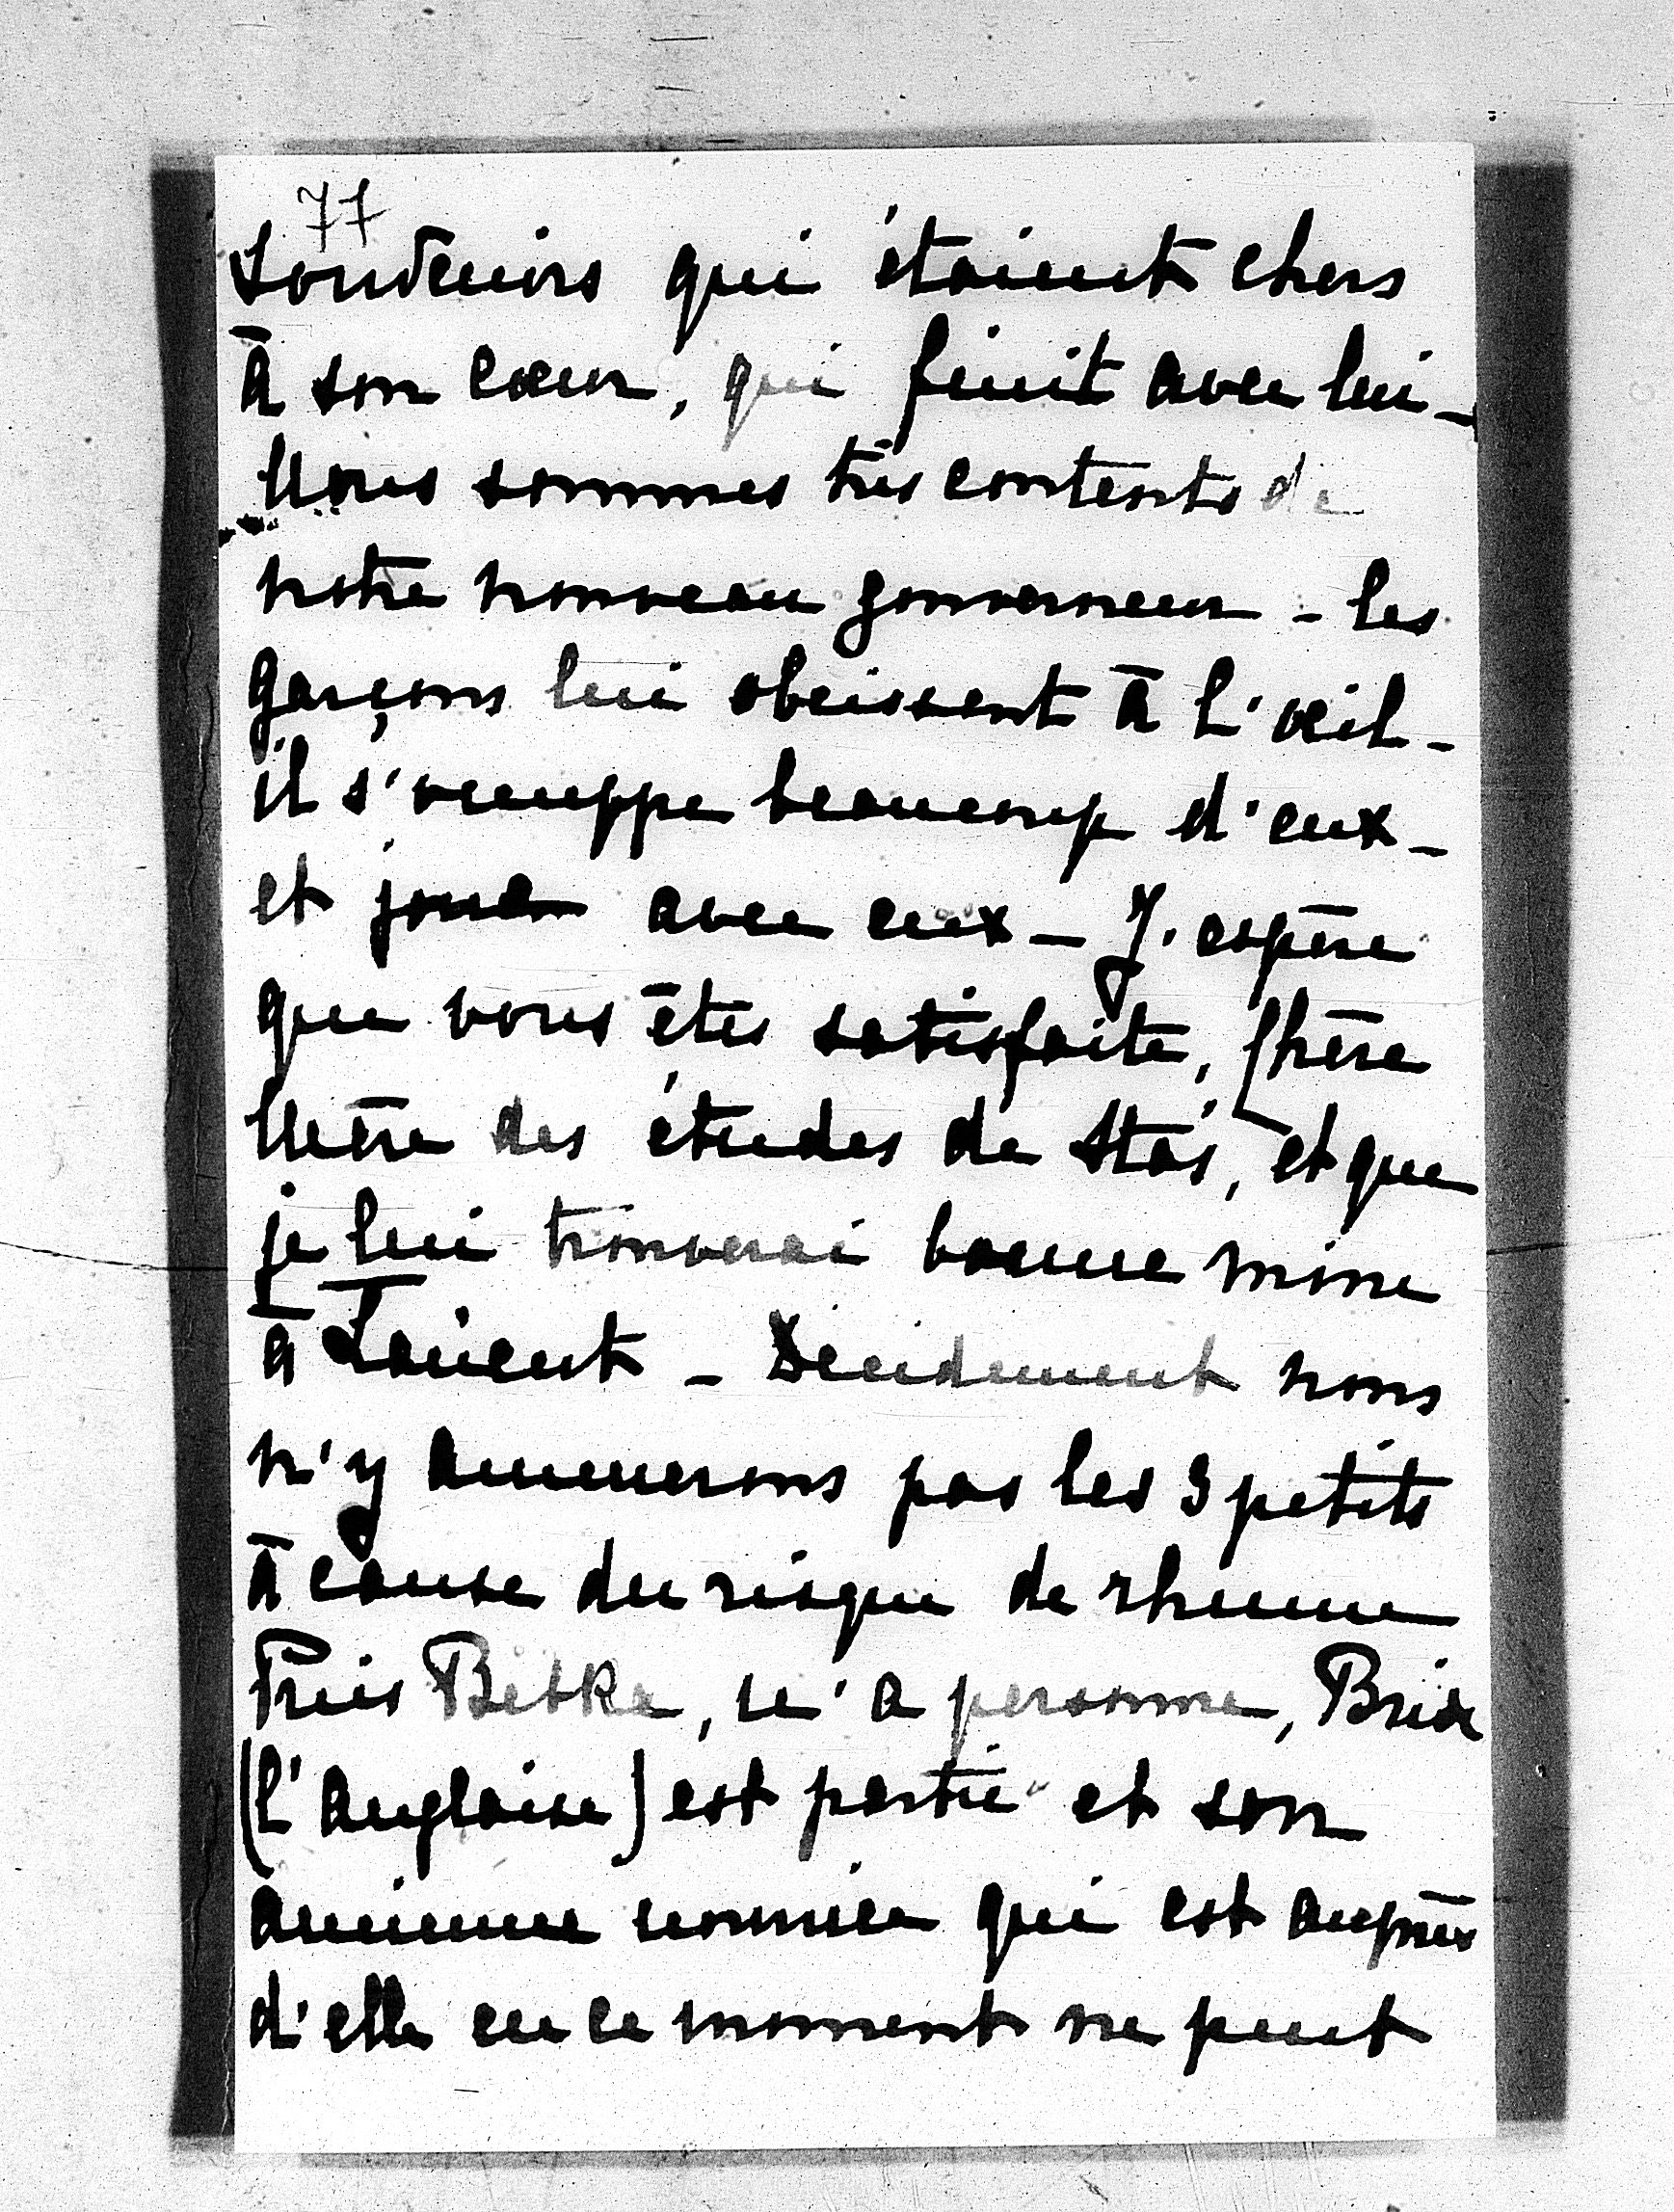 77
Souvenirs qui étaient chers
à son cœur, qui finit avec lui_
Nous sommes très contents de
notre nouveau gouverneur - les
garçons lui obeissent à l'œil_
il s'occuppe beaucoup d'eux_
et joue avec eux_ J'espère
que vous êtes satisfaite, Chère
Mère des études de Staś, et que
je lui trouverai bonne mine
à Łańcut _ Decidement nous
n'y amenerons pas les 3 petits
à cause du risque de rhume
Puis Betka, n'a personne, Brix
(l'anglaise) est partie et son
ancienne nourrice qui est auprès
d'elle en ce moment ne peut